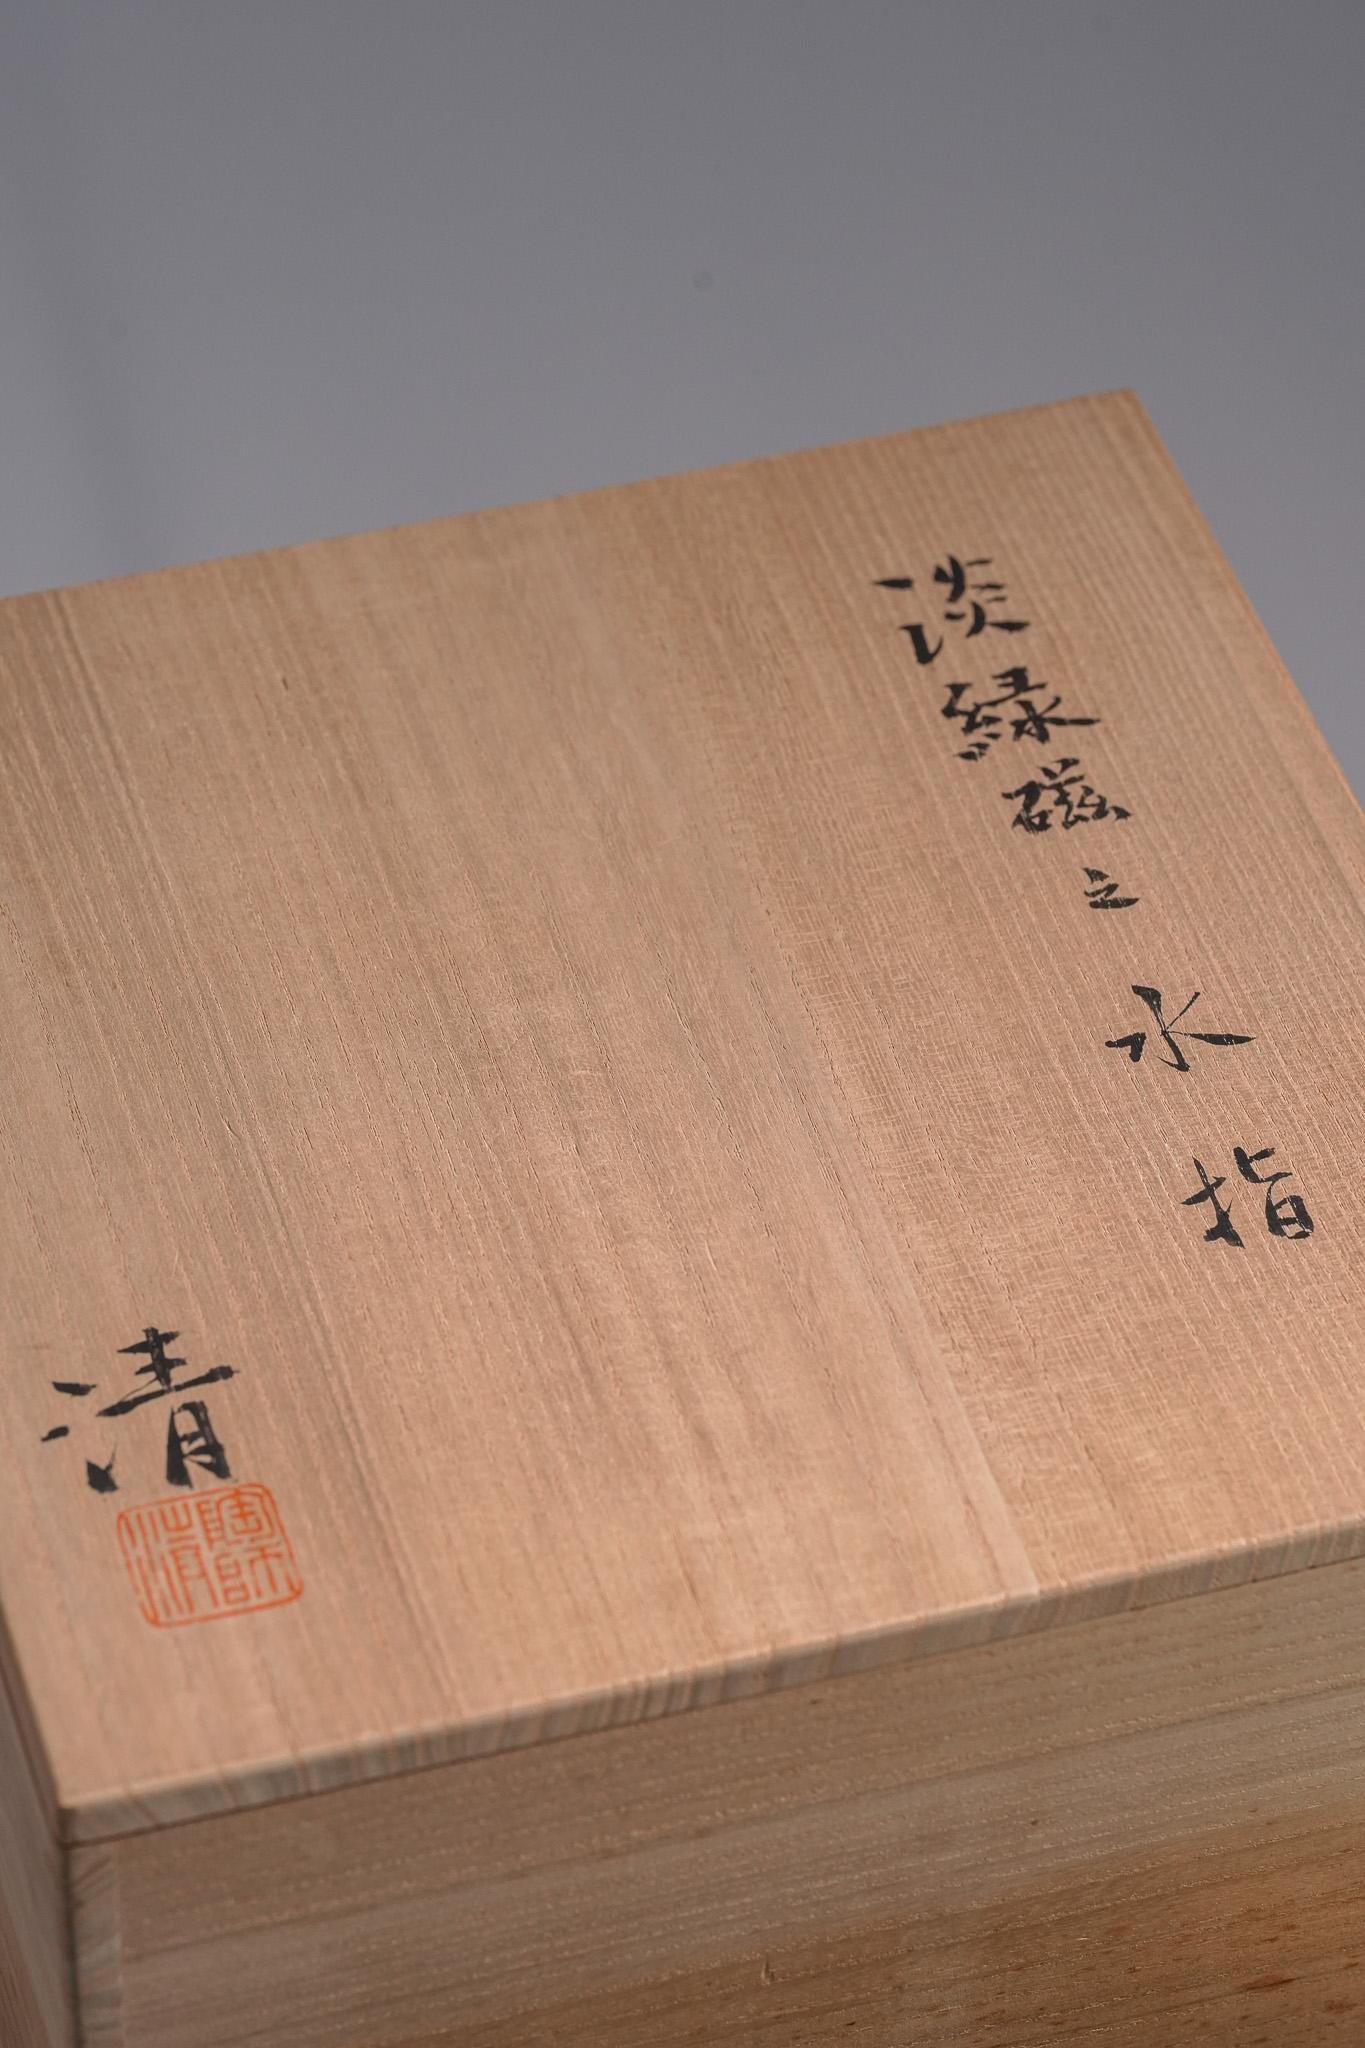 淡緑磁之水指
清
陶師
清